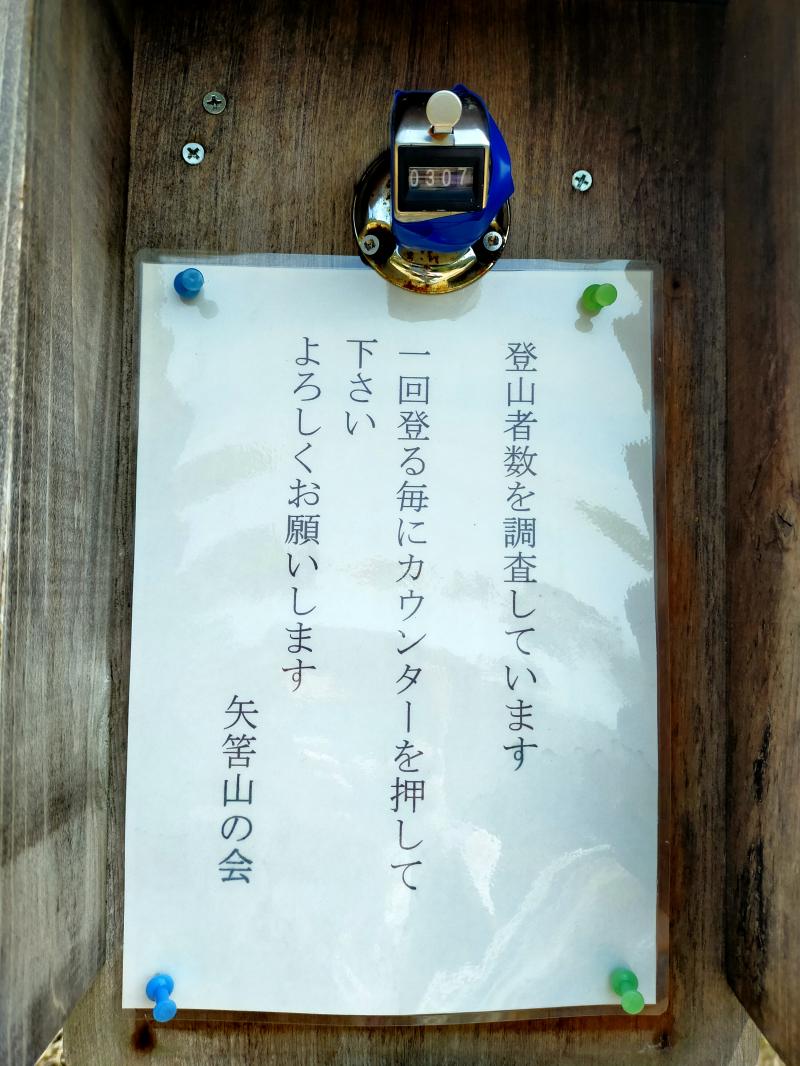 0307
登山者数を調査しています
一回登る毎にカウンターを押して
下さい
よろしくお願いします
矢筈山の会